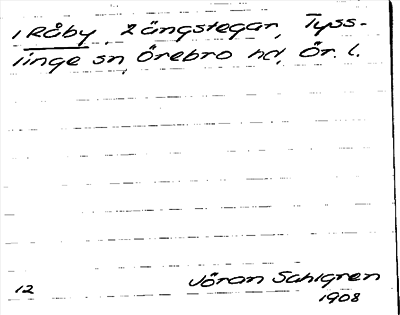 1 Råby, 2 ängstegar, Tyss-
linge sn, Örebro hd, Ör. l.
Jöran Sahlgren
12
1908